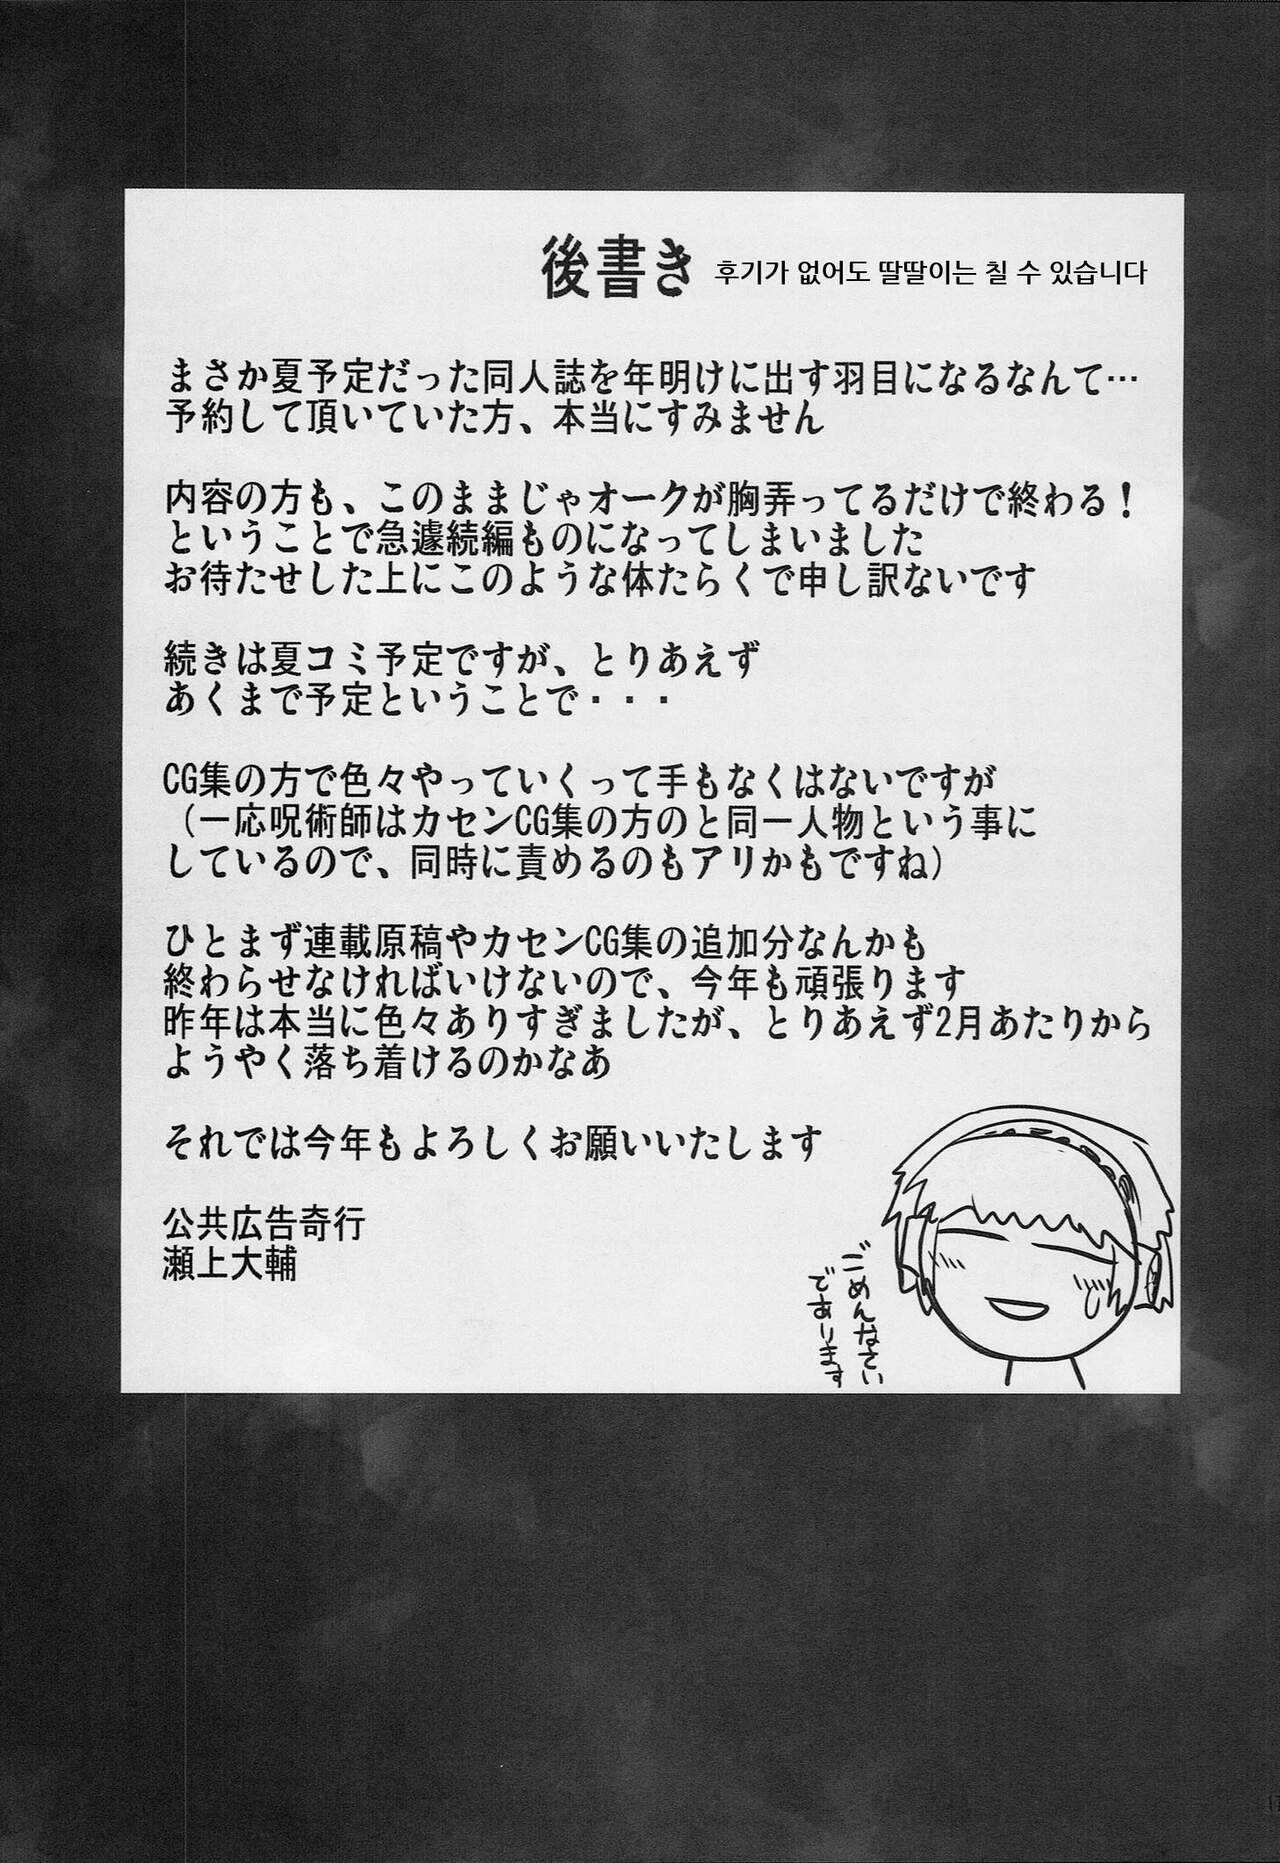 後書き 후기가 없어도 딸딸이는 칠 수 있습니다
まさか夏予定だった同人誌を年明けに出す羽目になるなんて…
予約して頂いていた方、本当にすみません
内容の方も、このままじゃオークが胸弄ってるだけで終わる！
ということで急遽続編ものになってしまいました
お待たせした上にこのような体たらくで申し訳ないです
続きは夏コミ予定ですが、とりあえず
あくまで予定ということで・・・
CG集の方で色々やっていくって手もなくはないですが
（一応呪術師はカセンCG集の方のと同一人物という事に
しているので、同時に責めるのもアリかもですね）
ひとまず連載原稿やカセンCG集の追加分なんかも
終わらせなければいけないので、今年も頑張ります
昨年は本当に色々ありすぎましたが、とりあえず2月あたりから
ようやく落ち着けるのかなあ
それでは今年もよろしくお願いいたします
公共広告奇行
瀬上大輔
ごめんなさい
であります